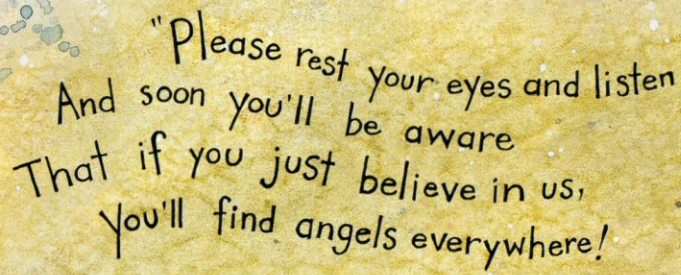 "Please rest your eyes and listen
And soon you'll be aware
That if you just believe in us,
You'll find angels everywhere!